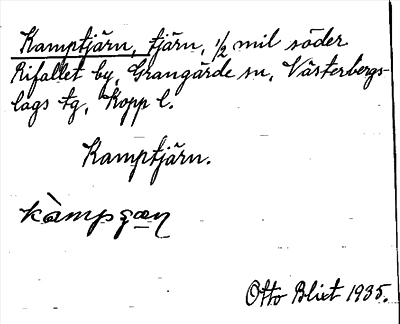 Kamptjärn, tjärn, 1/2 mil söder
Rifallet by, Grangärde sn, Västerbergs-
lags tg, Kopp l.
Kamptjärn.
Otto Blixt 1935.